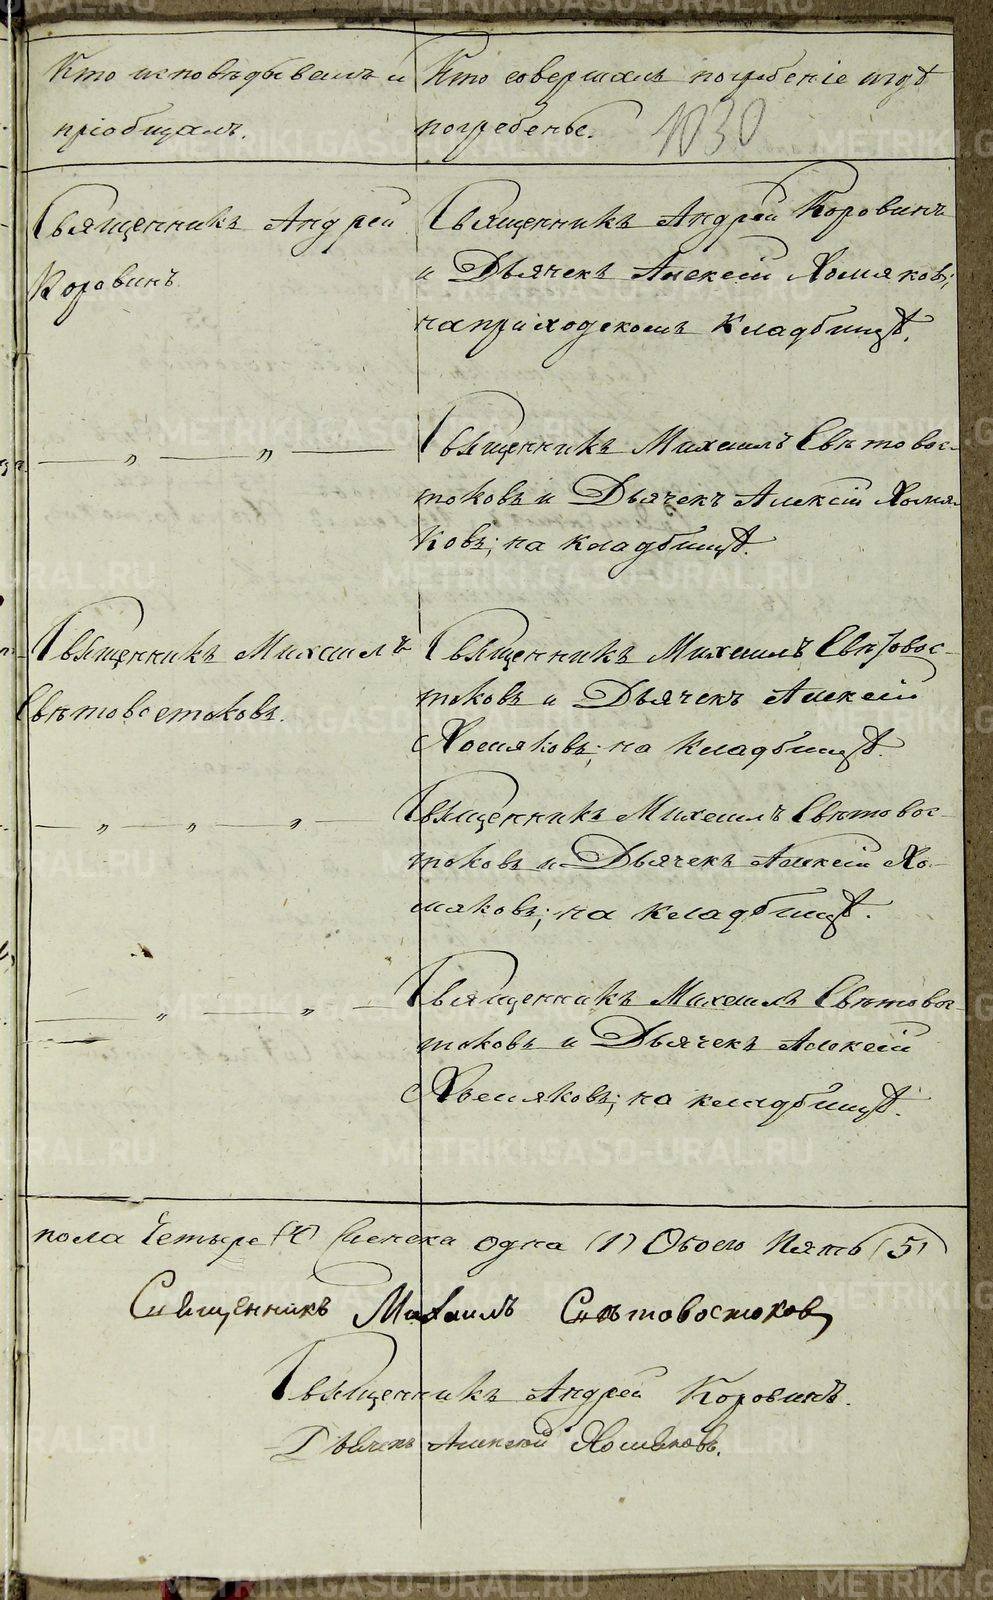 Кто исповѣдывалъ и
пріобщалъ.
Кто совершалъ погребеніе и гдѣ
погребены.
1030
Священникъ Андрей
Коровинъ.
Священникъ Андрей Коровинъ
и Дьячекъ Алексій Хомяковъ;
на приходскомъ кладбищѣ.
— „ — „ —
Священникъ Михаилъ Свѣтовос-
токовъ и Дьячекъ Алексій Хомя-
ковъ; на кладбищѣ.
Священникъ Михаилъ
Свѣтовостоковъ.
Священникъ Михаилъ Свѣтовос-
токовъ и Дьячекъ Алексій
Хомяковъ; на кладбищѣ.
— „ — „ — „ —
Священникъ Михаилъ Свѣтовос-
токовъ и Дьячекъ Алексій Хо-
мяковъ; на кладбищѣ.
— „ — „ —
Священникъ Михаилъ Свѣтовос-
токовъ и Дьячекъ Алексій
Хомяковъ; на кладбищѣ.
пола Четыре (4) Женска одна (1) Обоего Пять (5)
Священникъ Михаилъ Свѣтовостоковъ
Священникъ Андрей Коровинъ.
Дьячекъ Алексій Хомяковъ.
METRIKI.GASO-URAL.RU